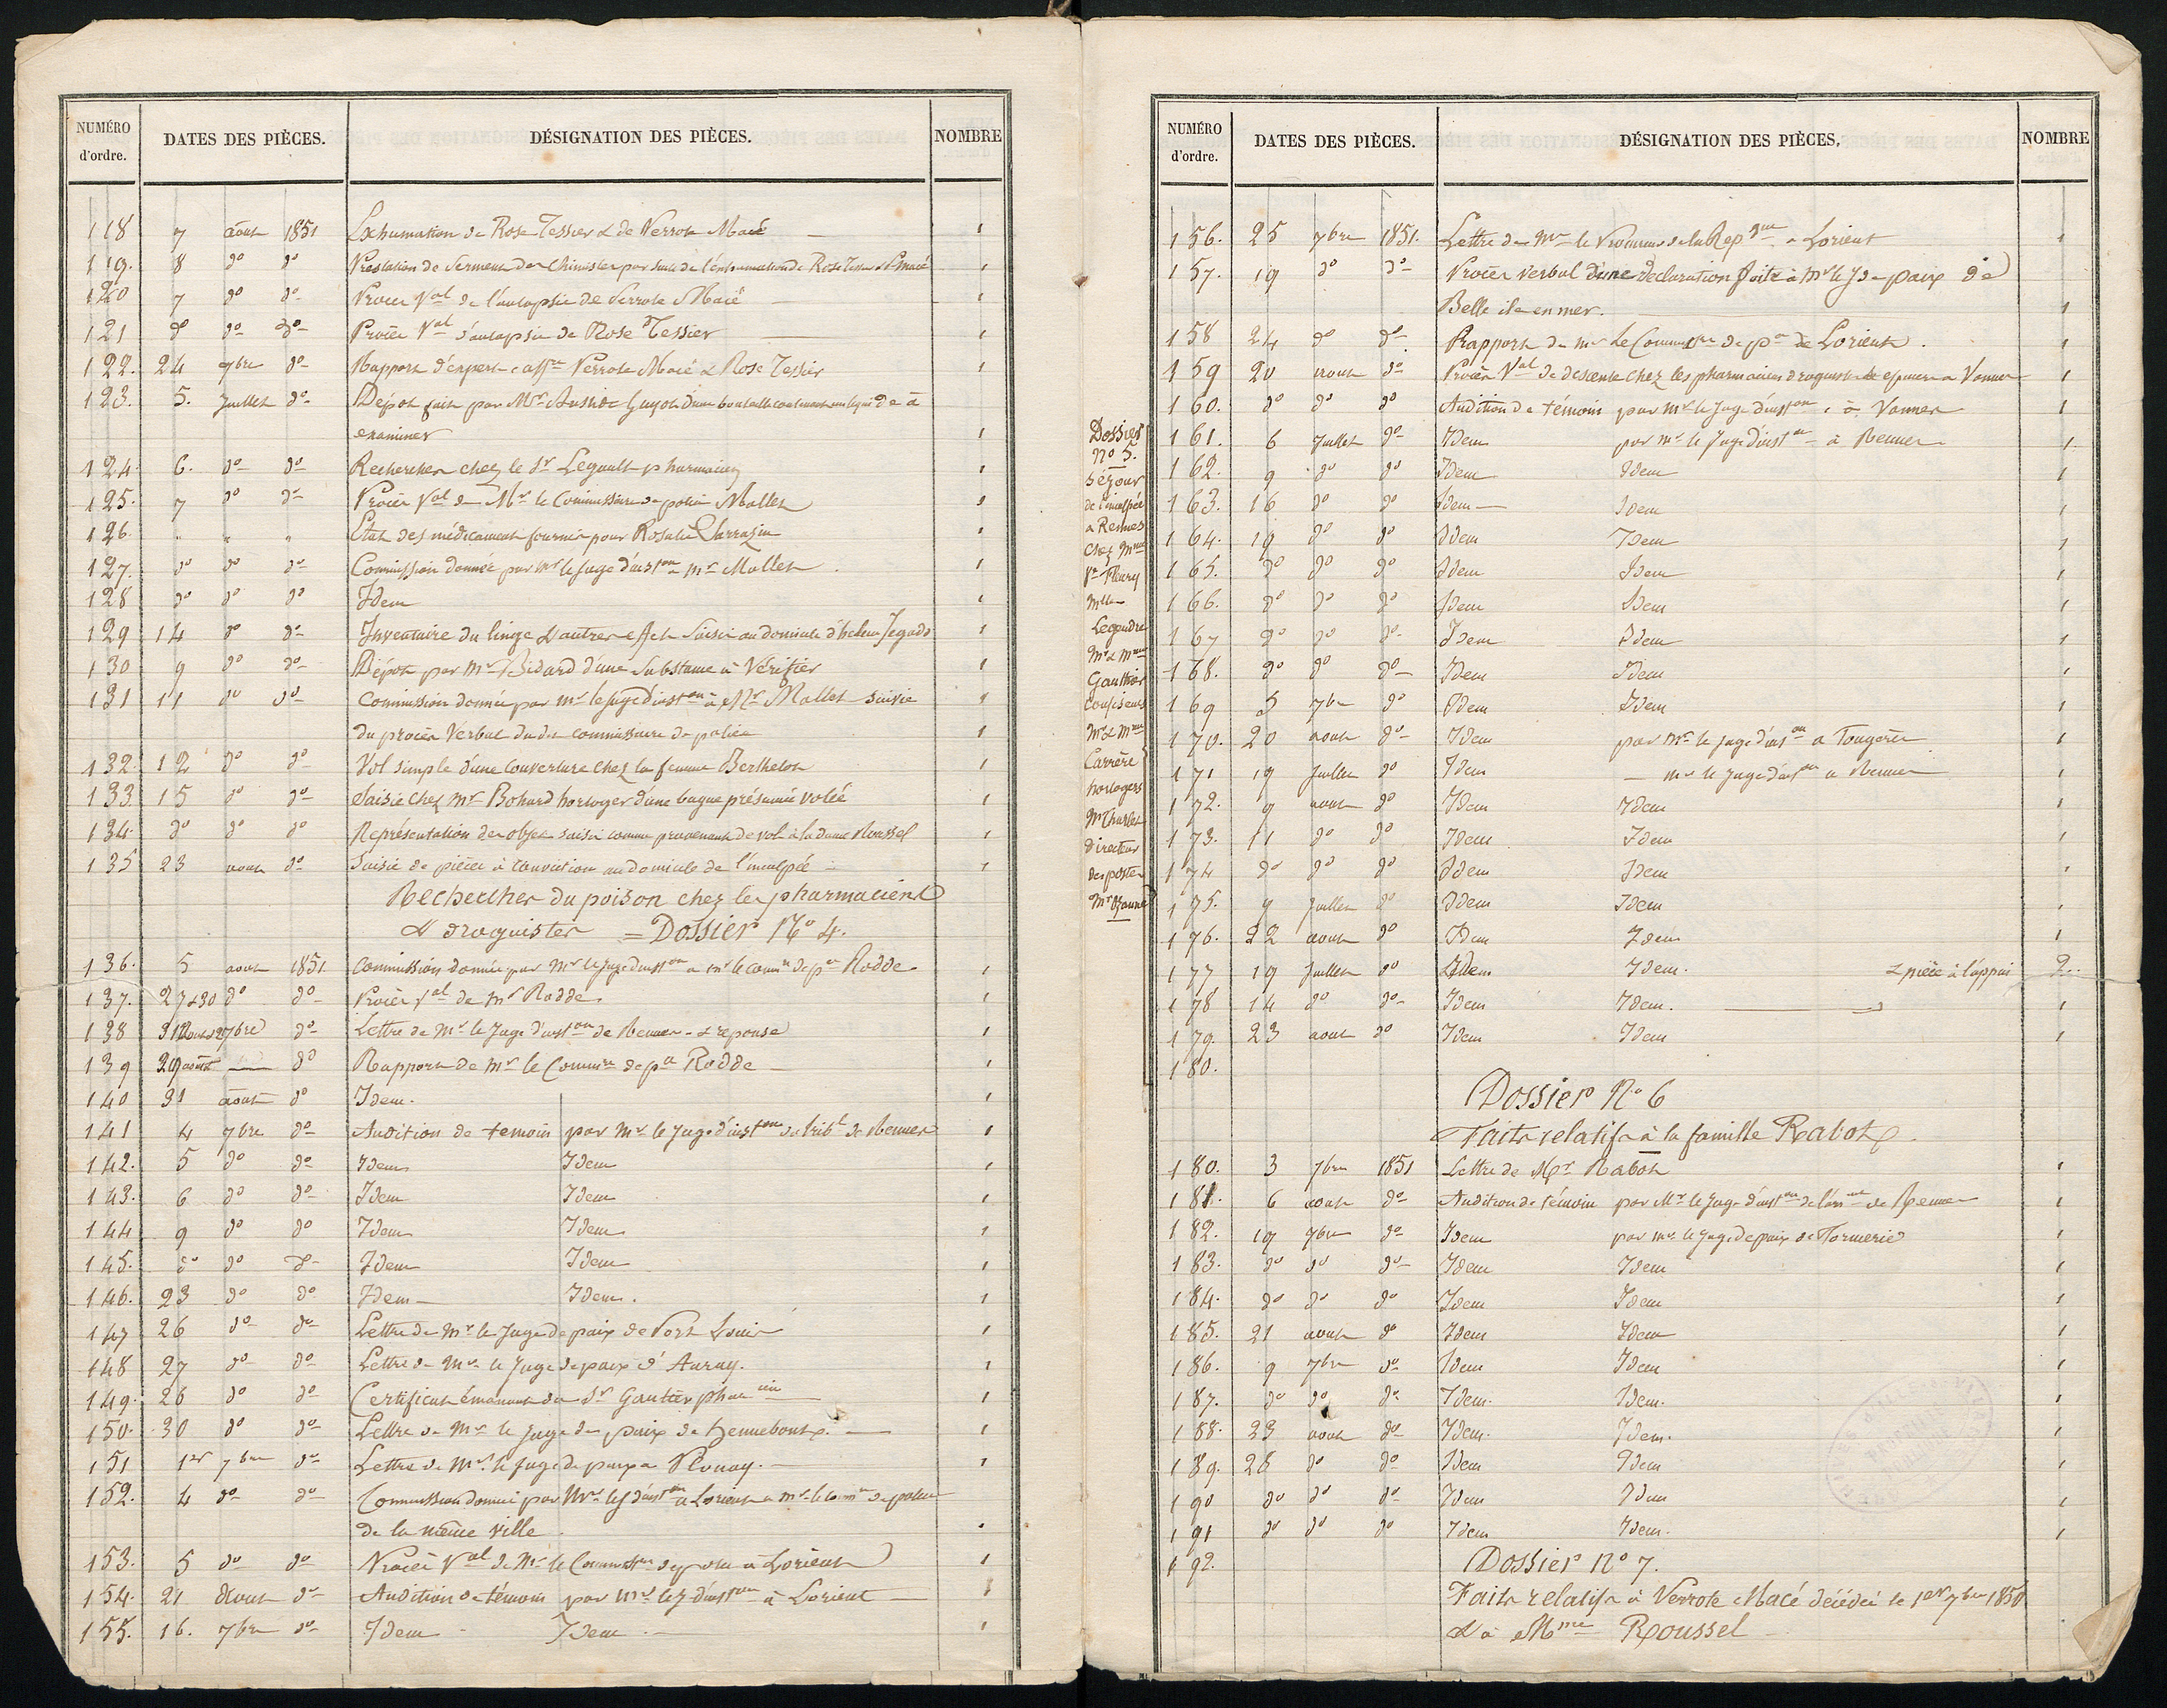 NUMÉRO d'ordre. DATES DES PIÈCES. DÉSIGNATION DES PIÈCES. NOMBRE
118 7 août 1851 Exhumation de Rose Tessier & de Perrote Macé 1
119. 8 do do Prestation de Serment des Chimistes par suite de l'exhumation de Rose Tessier & P. Macé 1
120 7 do do Procès Val de l'autopsie de Perrote Macé 1
121 do do do Procès Val d'autopsie de Rose Tessier 1
122. 24 7bre do Rapport d'expert affre Perrote Macé & Rose Tessier 1
123. 5. Juillet do Dépôt fait par Mr Guyot d'une bouteille contenant un liquide à
examiner 1
124. 6. do do Recherches chez le Sr Legault pharmacien 1
125. 7 do do Procès Val de Mr le Commissaire de police Mallet 1
126. " " " Etat des médicaments fournis pour Rosalie Sarrazin 1
127. do do do Commission donnée par Mr le Juge d'inston à Mr Mallet 1
128 do do do Idem 1
129 14 do do Inventaire du linge & autres effets Saisis au domicile d'helene Jegado 1
130 9 do do Dépôt par Mr Bidard d'une Substance à Vérifier 1
131 11 do do Commission donnée par Mr le Juge d'inston à Mr Mallet suivie 1
du procès Verbal dudit commissaire de police 1
132. 12 do do Vol simple d'une couverture chez la femme Berthelot 1
133. 15 do do Saisie chez Mr Bohard horloger d'une bague présumée volée 1
134. do do do Représentation des objets saisis comme provenant de vol à la dame Roussel 1
135 23 août do Saisie de pièces à conviction au domicile de l'inculpée 1
Recherches du poison chez les pharmaciens
& droguistes = Dossier No 4.
136. 5 août 1851. Commission donnée par Mr le Juge d'inston a mr le comre de pce Rodde 1
137. 27 & 30 do do Procès Val de Mr Rodde. 1
138 31 Août & 2 7bre do Lettre de Mr le Juge d'inston de Rennes - & réponse 1
139 29 août do Rapport de Mr le Commre de pce Rodde 1
140 31 août do Idem. 1
141 4 7bre do Audition de temoin par Mr le Juge d'inston du tribl de Rennes 1
142. 5 do do Idem Idem 1
143. 6 do do Idem Idem 1
144 9 do do Idem Idem 1
145. do do do Idem Idem 1
146. 23 do do Idem Idem. 1
147 26 do do Lettre de Mr le Juge de paix de Port Louis 1
148 27 do do Lettre de Mr le Juge de paix d'Auray. 1
149. 26 do do Certificat émanant du Sr Gautier pharcien 1
150. 30 do do Lettre de Mr le Juge de paix de Hennebont. 1
151 1er 7bre do Lettre de Mr le Juge de paix a Plouay. 1
152. 4 do do Commission donnée par Mr le J d'inston a Lorient a mr le comre de police
de la même ville 1
153. 5 do do Procès Val de Mr le Commissre de police a Lorient 1
154. 21 Août do Audition de témoin par Mr le J. d'inston à Lorient 1
155. 16. 7bre do Idem Idem 1
NUMÉRO d'ordre. DATES DES PIÈCES. DÉSIGNATION DES PIÈCES. NOMBRE
156. 25 7bre 1851. Lettre de Mr le Procureur de la Repque a Lorient 1
157. 19 do do Procès Verbal d'une declaration faite à Mr le J de paix de
Belle ile en mer. 1
158 24 do do Rapport de mr le Commissre de pce de Lorient. 1
159 20 août do Procès Val de descente chez les pharmaciens droguistes a Vannes 1
160. do do do Audition de témoin par Mr le Juge d'inston à Vannes 1
Dossier
no 5.
séjour
de l'inculpée
a Rennes
chez Mme
Ve Fleury
Mlle
Legendre
Mr & Mme
Gauthier
Mr & Mme
Carrère
horlogers
Mr Charlet
directeur
des postes
161. 6 Juillet do Idem par mr le Juge d'inston à Rennes 1
162. 9 do do Idem Idem 1
163. 16 do do Idem Idem 1
164. 19 do do Idem Idem 1
165. do do do Idem Idem 1
166. do do do Idem Idem 1
167 do do do Idem Idem 1
168. do do do Idem Idem 1
169 5 7bre do Idem Idem 1
170. 20 août do Idem par Mr le juge d'inston a Fougères 1
171 19 Juillet do Idem mr le Juge d'inston a Rennes 1
172. 9 août do Idem Idem 1
173. 11 do do Idem Idem 1
174 do do do Idem Idem 1
175. 9 Juillet do Idem Idem 1
176. 22 août do Idem Idem 1
177 19 Juillet do Idem Idem. & pièce à l'appui 2
178 14 do do Idem Idem. 1
179. 23 août do Idem Idem 1
180.
Dossier No 6
Faits relatifs à la famille Rabot.
180. 3 7bre 1851 Lettre de Mr Rabot 1
181. 6 août do Audition de témoin par Mr le Juge d'inston de Rennes 1
182. 19 7bre do Idem par mr le Juge de paix de Formerie 1
183. do do do Idem Idem 1
184. do do do Idem Idem 1
185. 21 août do Idem Idem 1
186. 9 7bre do Idem Idem 1
187. do do do Idem. Idem. 1
188. 23 août do Idem. Idem. 1
189. 26 do do Idem Idem 1
190 do do do Idem Idem 1
191 do do do Idem Idem. 1
192. Dossier no 7.
Faits relatifs à Perrote Macé décédée le 1er 7bre 1850
& à Mme Roussel